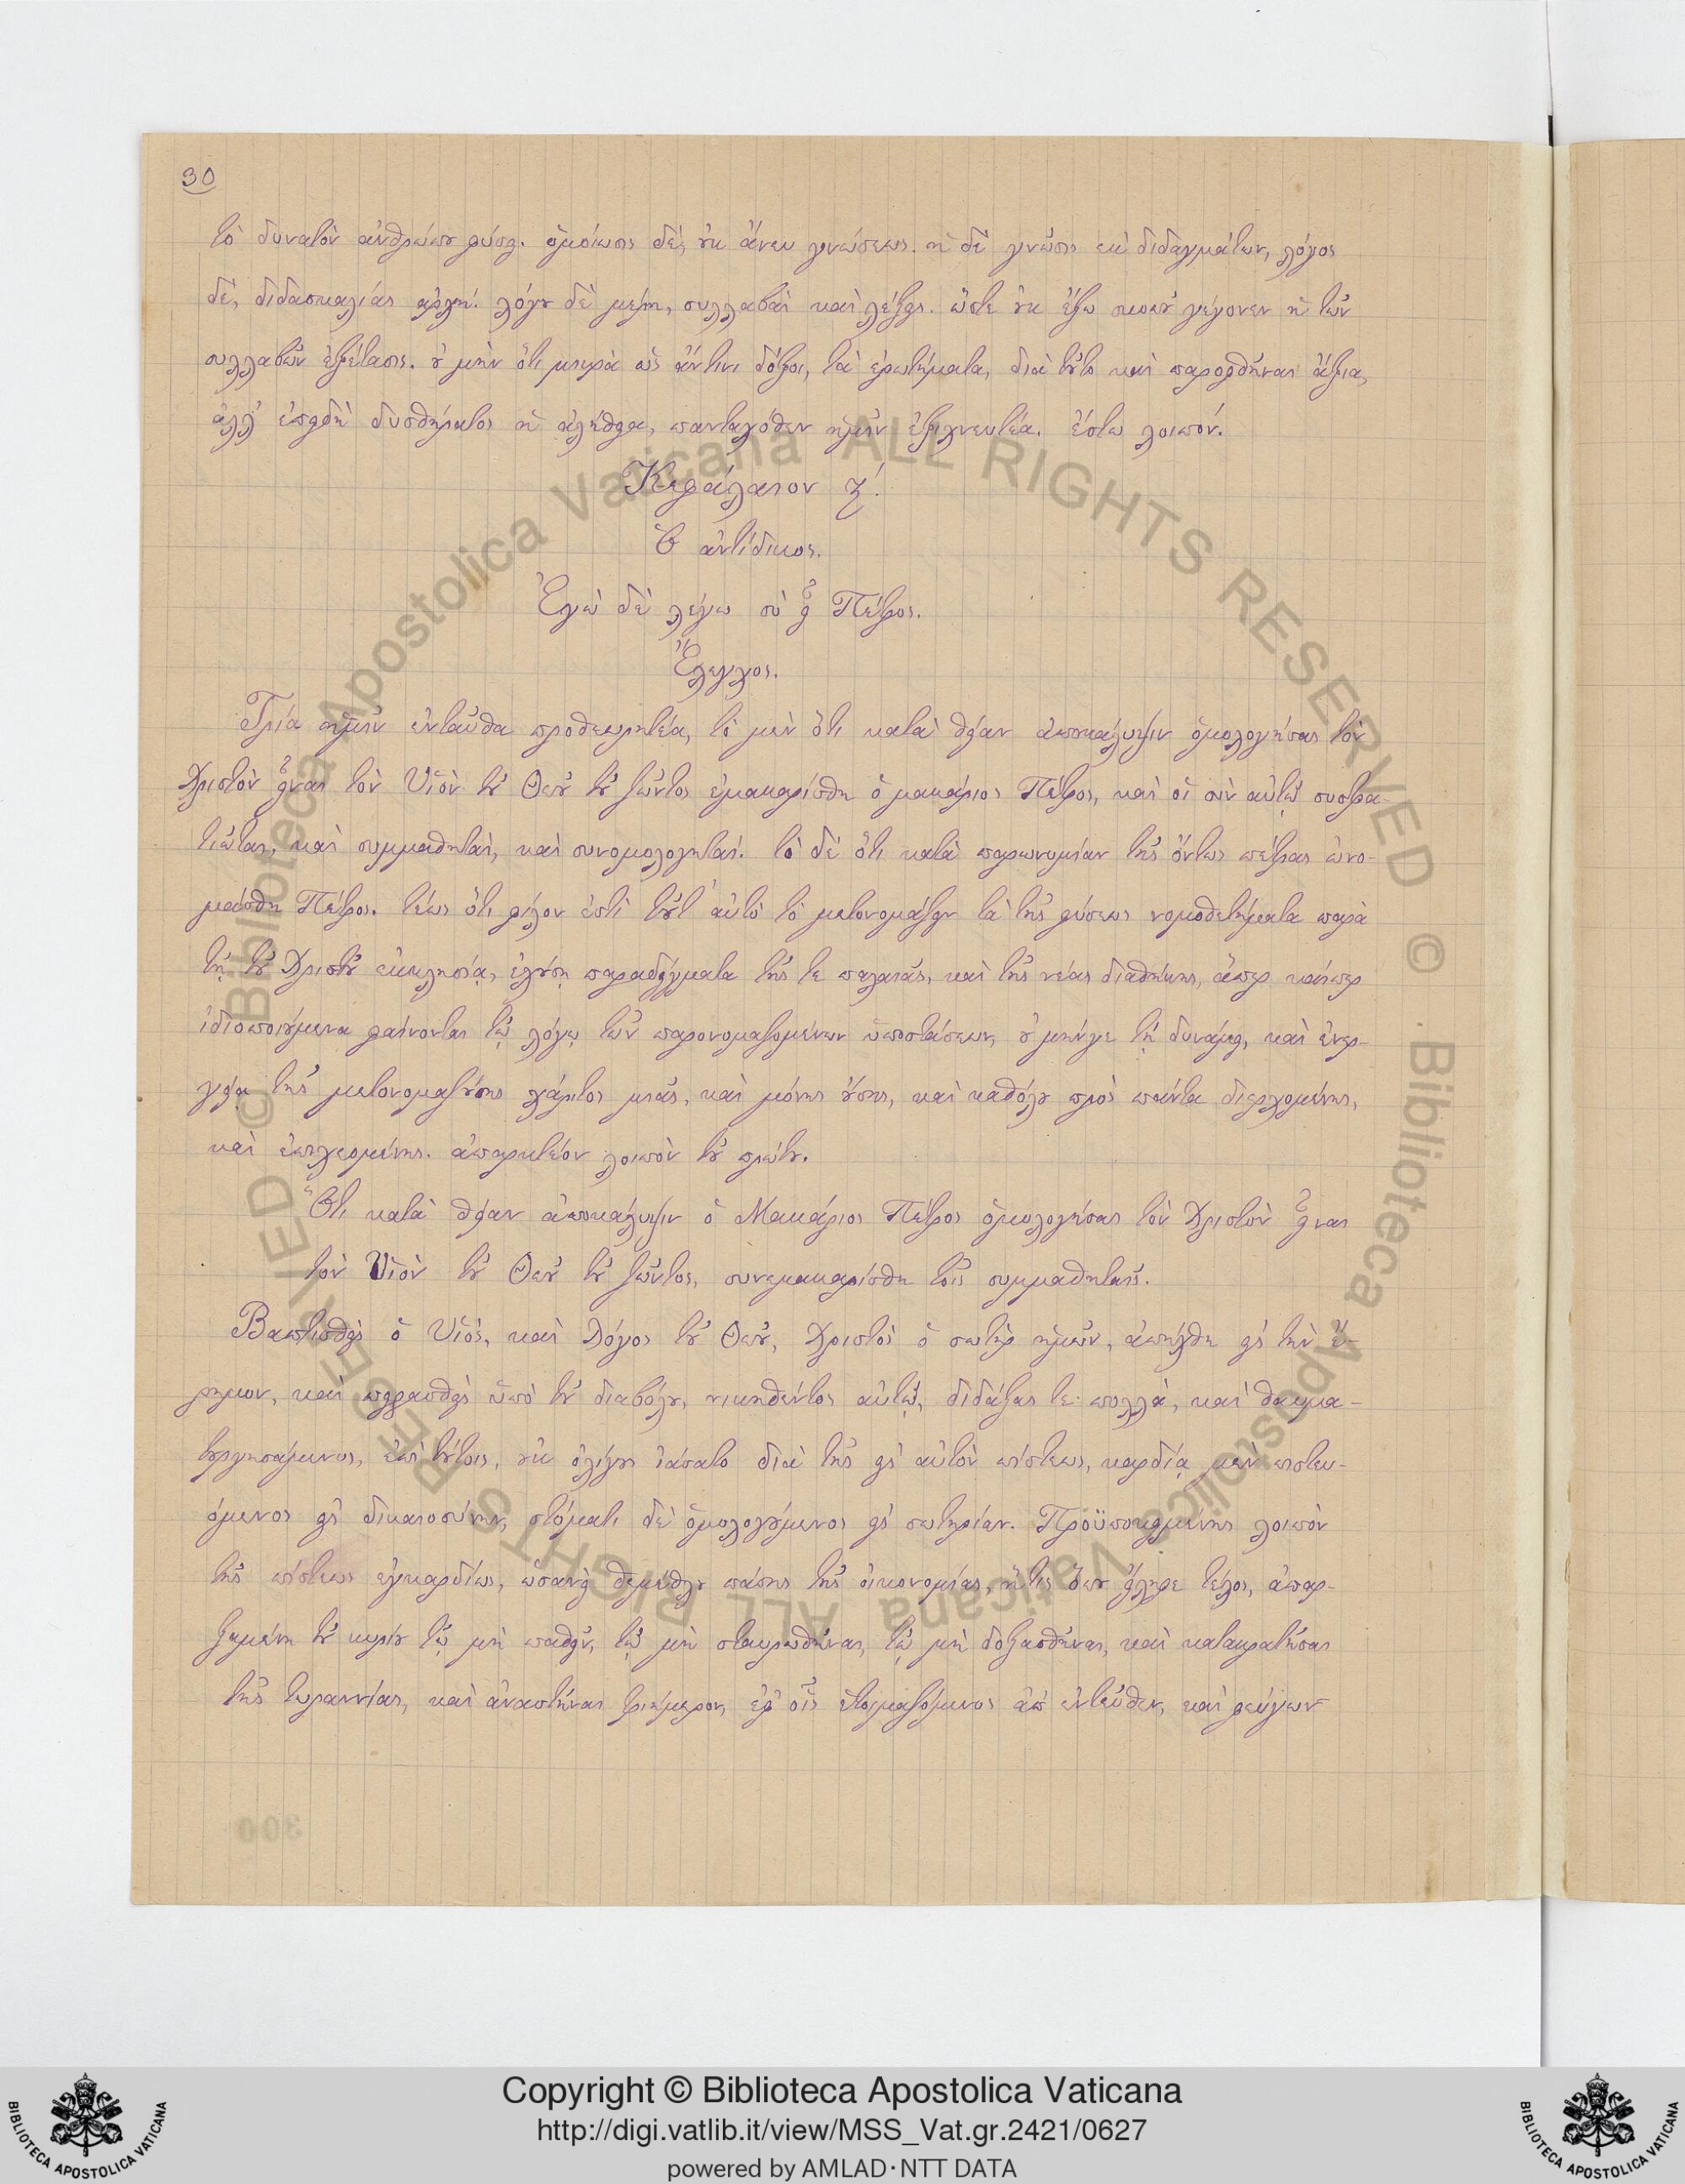 30
τὸ δυνατὸν ἀνθρώπου φύσει. ὁμοίωσις δὲ, οὐκ ἄνευ γνώσεως. ἡ δὲ γνῶσις ἐκ διδαγμάτων, λόγος
δὲ, διδασκαλίας ἀρχή. λόγου δὲ μέρη, συλλαβαὶ καὶ λέξεις. ὥστε οὐκ ἔξω σκοποῦ γέγονεν ἡ τῶν
συλλαβῶν ἐξέτασις. οὐ μὴν ὅτι μικρὰ ὡς ἄν τινι δόξοι, τὰ ἐρωτήματα, διὰ τοῦτο καὶ παροφθῆναι ἄξια,
ἀλλ' ἐπειδὴ δυσθήρατος ἡ ἀλήθεια, πανταχόθεν ἡμῖν ἐξιχνευτέα. ἔστω λοιπόν.
Κεφάλαιον ζ΄.
Ὁ ἀντίδικος.
Ἐγὼ δὲ λέγω σὺ εἶ Πέτρος.
Ἔλεγχος.
Τρία ἡμῖν ἐνταῦθα προθεωρητέα, τὸ μὲν ὅτι κατὰ θείαν ἀποκάλυψιν ὁμολογήσας τὸν
Χριστὸν εἶναι τὸν Υἱὸν τοῦ Θεοῦ τοῦ ζῶντος ἐμακαρίσθη ὁ μακάριος Πέτρος, καὶ οἱ σὺν αὐτῷ συστρα-
τιῶται, καὶ συμμαθηταὶ, καὶ συνομολογηταί. τὸ δὲ ὅτι κατὰ παρωνυμίαν τῆς ὄντως πέτρας ὠνο-
μάσθη Πέτρος. τέως ὅτι φίλον ἐστὶ τοῦτ' αὐτὸ τὸ μετονομάζειν τὰ τῆς φύσεως νομοθετήματα παρὰ
τῇ τοῦ Χριστοῦ ἐκκλησίᾳ, ἐχούσῃ παραδείγματα τῆς τε παλαιᾶς, καὶ τῆς νέας διαθήκης, ἅπερ καίπερ
ἰδιοποιούμενα φαίνονται τῷ λόγῳ τῶν παρονομαζομένων ὑποστάσεων, οὐ μήνγε τῇ δυνάμει, καὶ ἐνερ-
γείᾳ τῆς μετονομαζούσης χάριτος μιᾶς, καὶ μόνης οὔσης, καὶ καθόλου πρὸς πάντα διερχομένης,
καὶ ἐπιχεομένης. ἀπαρκτέον λοιπὸν τοῦ πρώτου.
Ὅτι κατὰ θείαν ἀποκάλυψιν ὁ Μακάριος Πέτρος ὁμολογήσας τὸν Χριστὸν εἶναι
τὸν Υἱὸν τοῦ Θεοῦ τοῦ ζῶντος, συνεμακαρίσθη τοῖς συμμαθηταῖς.
Βαπτισθεὶς ὁ Υἱὸς, καὶ Λόγος τοῦ Θεοῦ, Χριστὸς ὁ σωτὴρ ἡμῶν, ἀπήχθη εἰς τὴν ἔ-
ρημον, καὶ πειρασθεὶς ὑπὸ τοῦ διαβόλου, νικηθέντος αὐτῷ, διδάξας τε πολλὰ, καὶ θαυμα-
τουργησάμενος, ἐπὶ τούτοις, οὐκ ὀλίγους ἰάσατο διὰ τῆς εἰς αὐτὸν πίστεως, καρδίᾳ μὲν πιστευ-
όμενος εἰς δικαιοσύνην, στόματι δὲ ὁμολογούμενος εἰς σωτηρίαν. Προϋποκειμένης λοιπὸν
τῆς πίστεως ἐγκαρδίως, ὡσανεὶ θεμέθλου πάσης τῆς οἰκονομίας, ἥτις ὅπου εἴληφε τέλος, ἀπαρ-
ξαμένη τοῦ κυρίου τῷ μὴ παθεῖν, τῷ μὴ σταυρωθῆναι, τῷ μὴ δοξασθῆναι, καὶ κατακρατῆσαι
τῆς τυραννίας, καὶ ἀναστῆναι τριήμερον, ἐφ' οἷς ἑτοιμαζόμενος ἀπ' ἐντεῦθεν, καὶ φεύγων
300
© Biblioteca Apostolica Vaticana ALL RIGHTS RESERVED © Biblioteca Apostolica Vaticana ALL RIGHTS RESERVED
Copyright © Biblioteca Apostolica Vaticana
http://digi.vatlib.it/view/MSS_Vat.gr.2421/0627
powered by AMLAD·NTT DATA
BIBLIOTECA APOSTOLICA VATICANA
BIBLIOTECA APOSTOLICA VATICANA